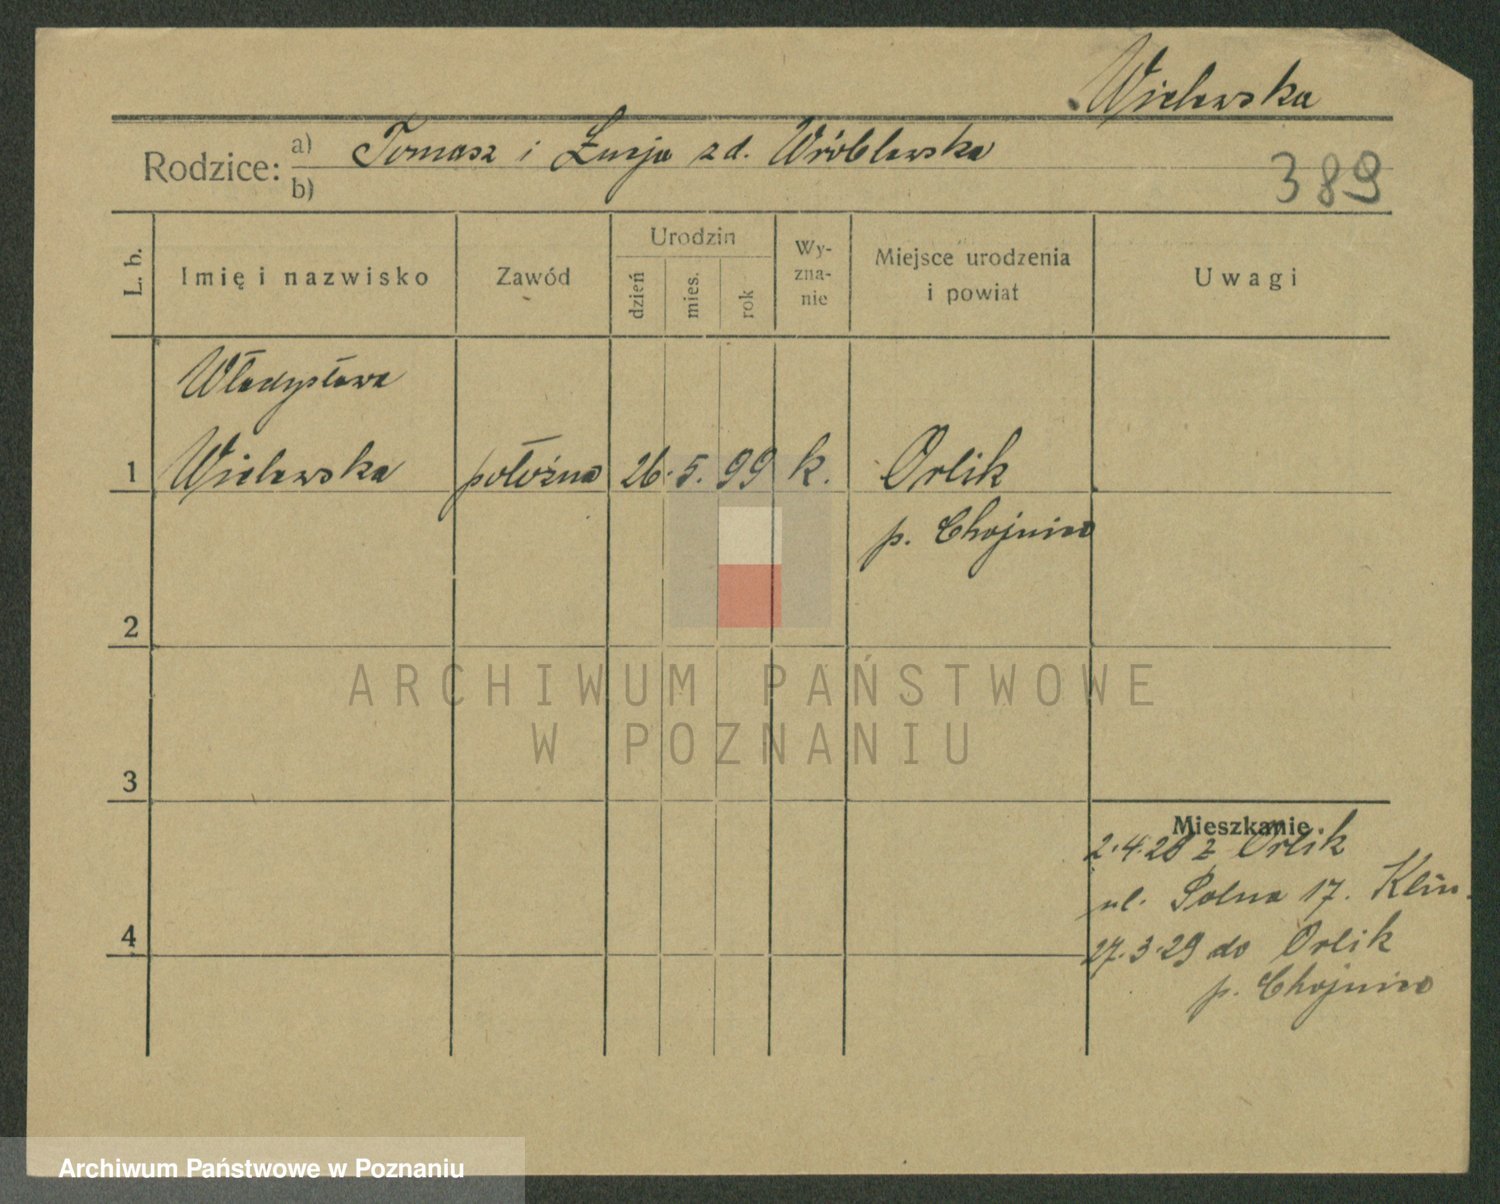 Wielewska
Rodzice: a) Tomasz i Łucja z d. Wróblewska
b)
389
L. b.
Imię i nazwisko
Zawód
Urodzin
dzień
mies.
rok
Wy-
zna-
nie
Miejsce urodzenia
i powiat
Uwagi
Władysława
1 Wielewska położna 26. 5. 99 k. Orlik
p. Chojnice
2
ARCHIWUM PAŃSTWOWE
W POZNANIU
3
Mieszkanie
2.4.28 z Orlik
ul. Polna 17. Klin.
4
27.3.29 do Orlik
p. Chojnice
Archiwum Państwowe w Poznaniu